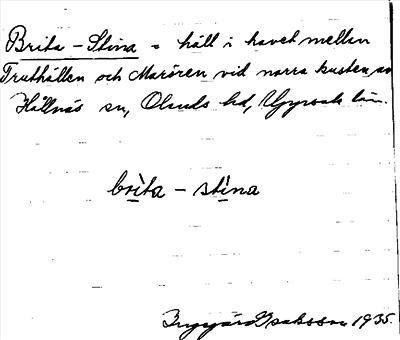 Brita - Stina = häll i havet mellan
Truthällen och Marören vid norra kusten av
Hållnäs sn, Olands hd, Uppsala län.
brita - stina
Ingegärd Isaksson 1935.